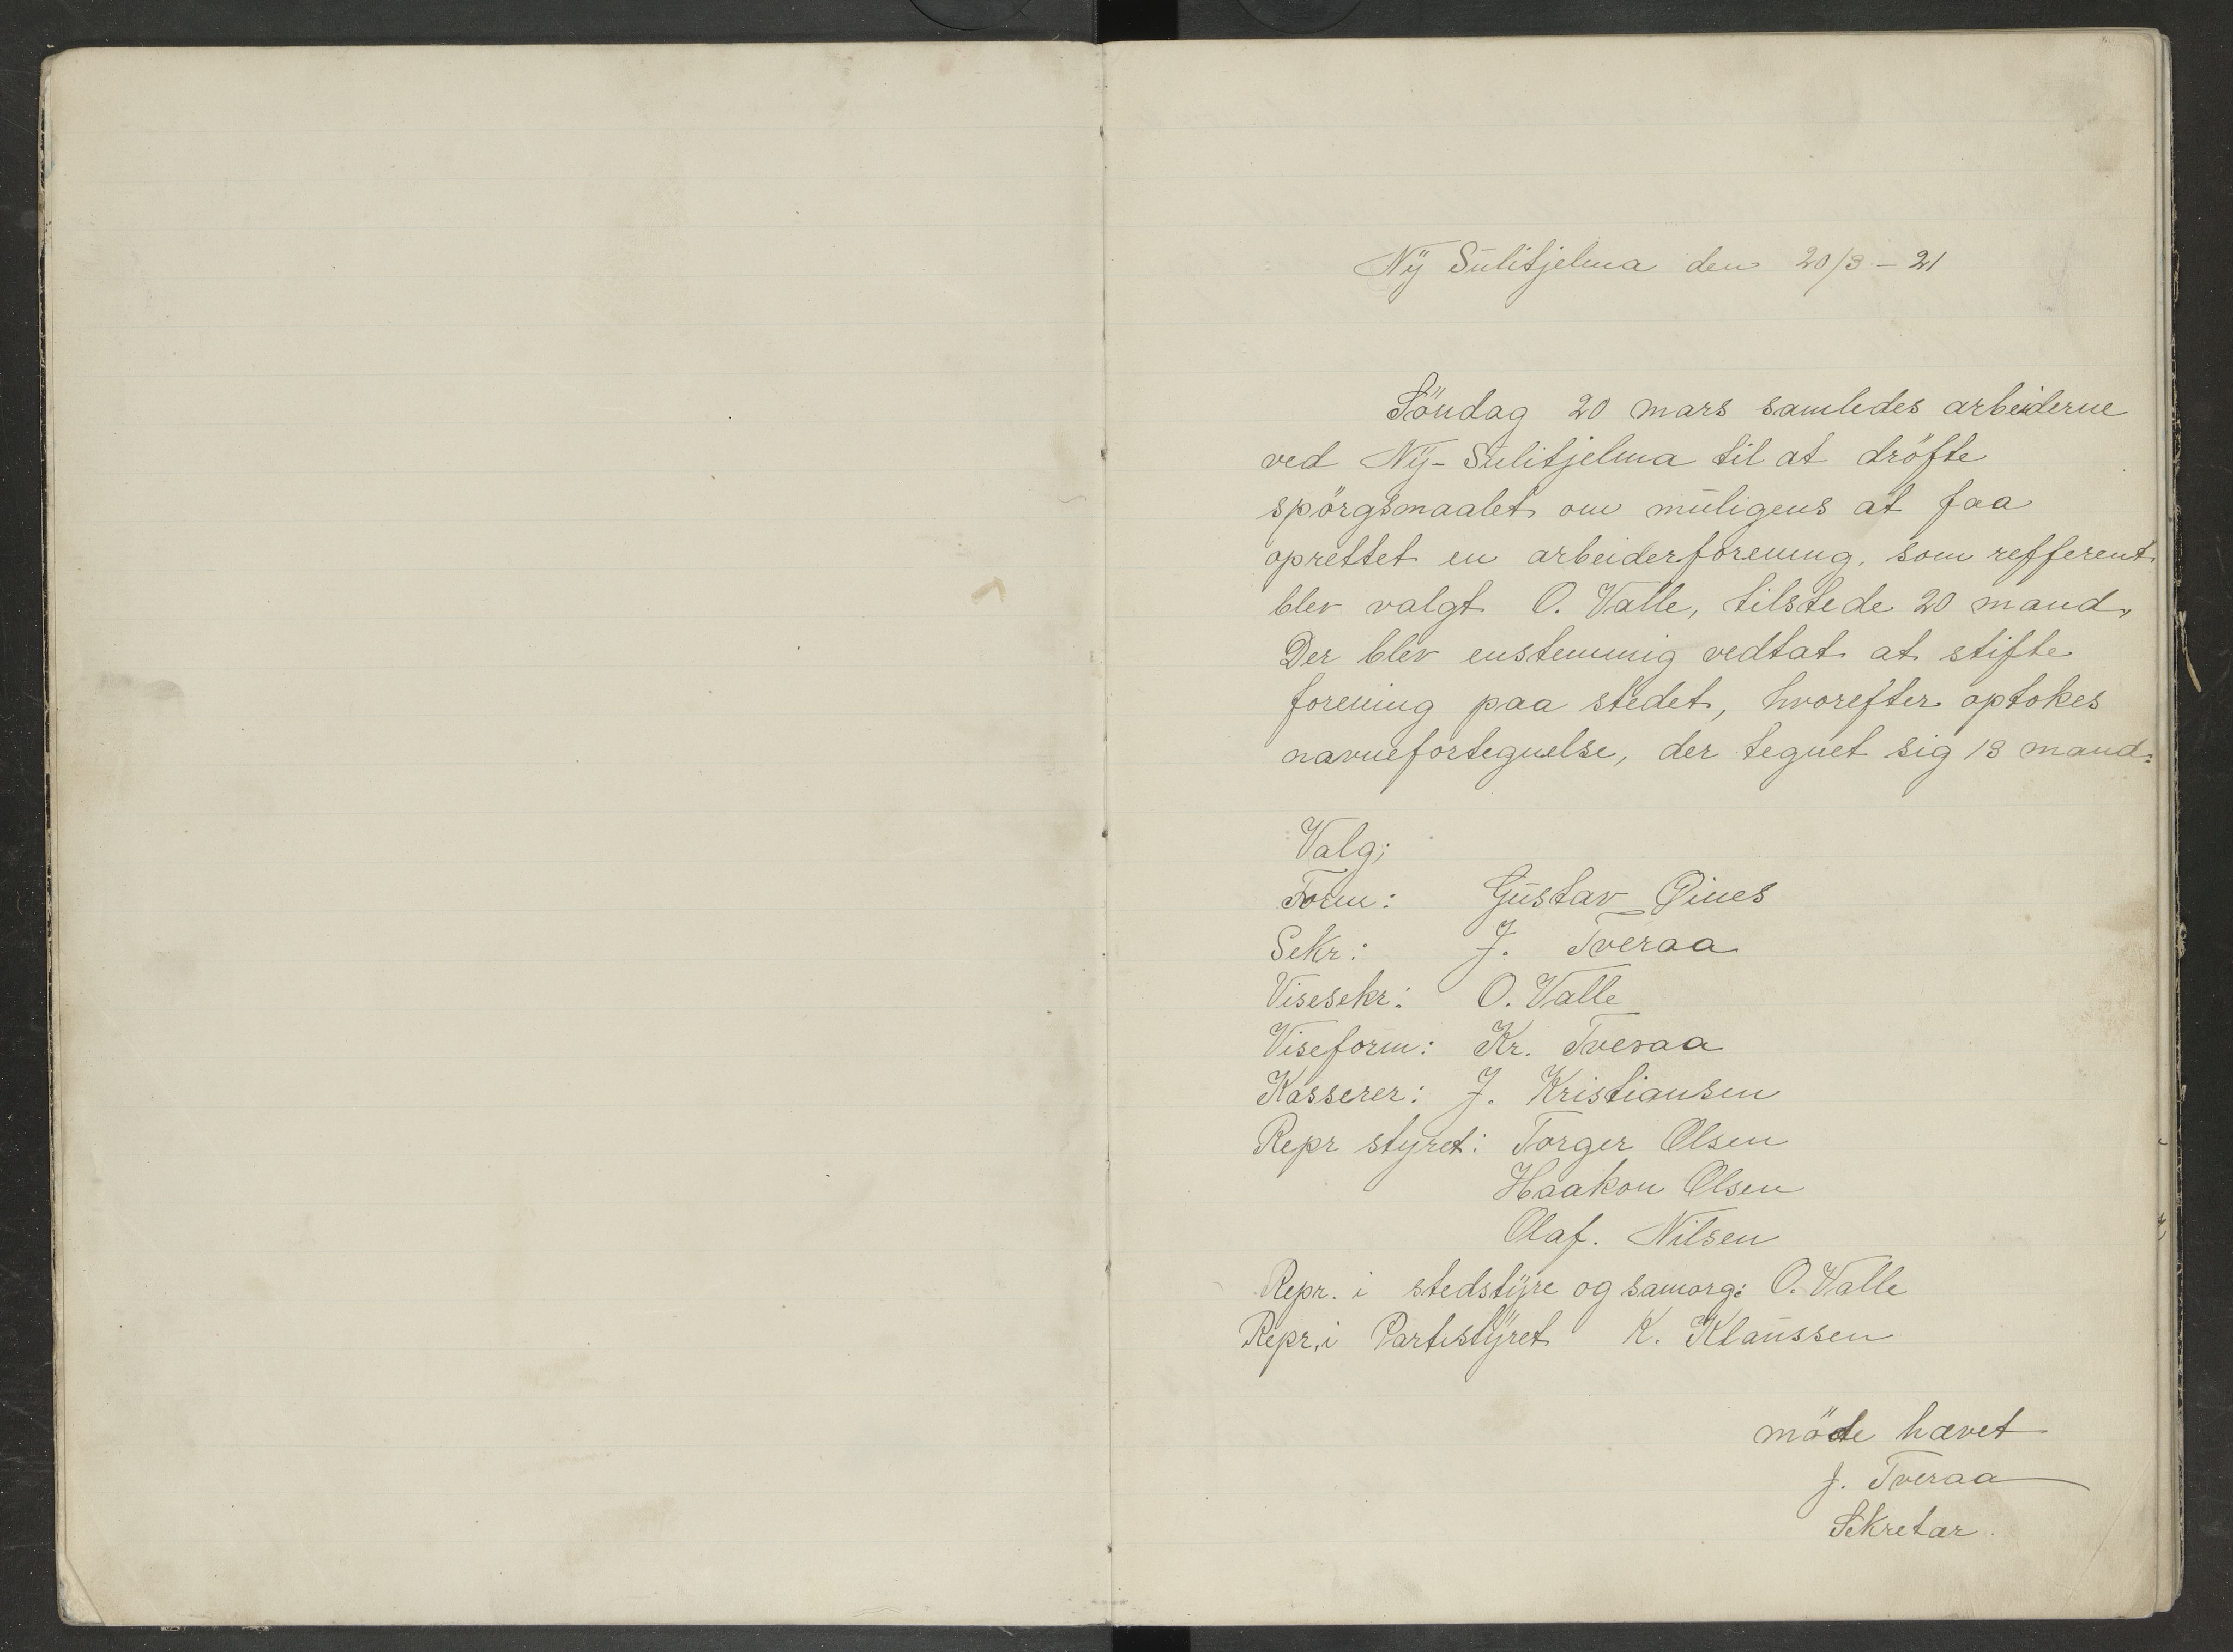 Ny Sulitjelma den 20/3 - 21
Söndag 20 mars samledes arbeiderne
ved Ny-Sulitjelma til at dröfte
spörgsmaalet om muligens at faa
oprettet en arbeiderforening. som refferent
blev valgt O. Valle, tilstede 20 mand,
Der blev enstemmig vedtat at stifte
forening paa stedet, hvorefter optokes
navnefortegnelse, der tegnet sig 13 mand:
Valg;
Form: Gustav Öines
Sekr: J. Tveraa
Visesekr: O. Valle
Viseform: Kr. Tveraa
Kasserer: J. Kristiansen
Repr styret: Torger Olsen
Haakon Olsen
Olaf. Nilsen
Repr. i stedstyre og samorg: O. Valle
Repr. i Partistyret K. Klaussen
möte hævet
J. Tveraa
Sekretær.